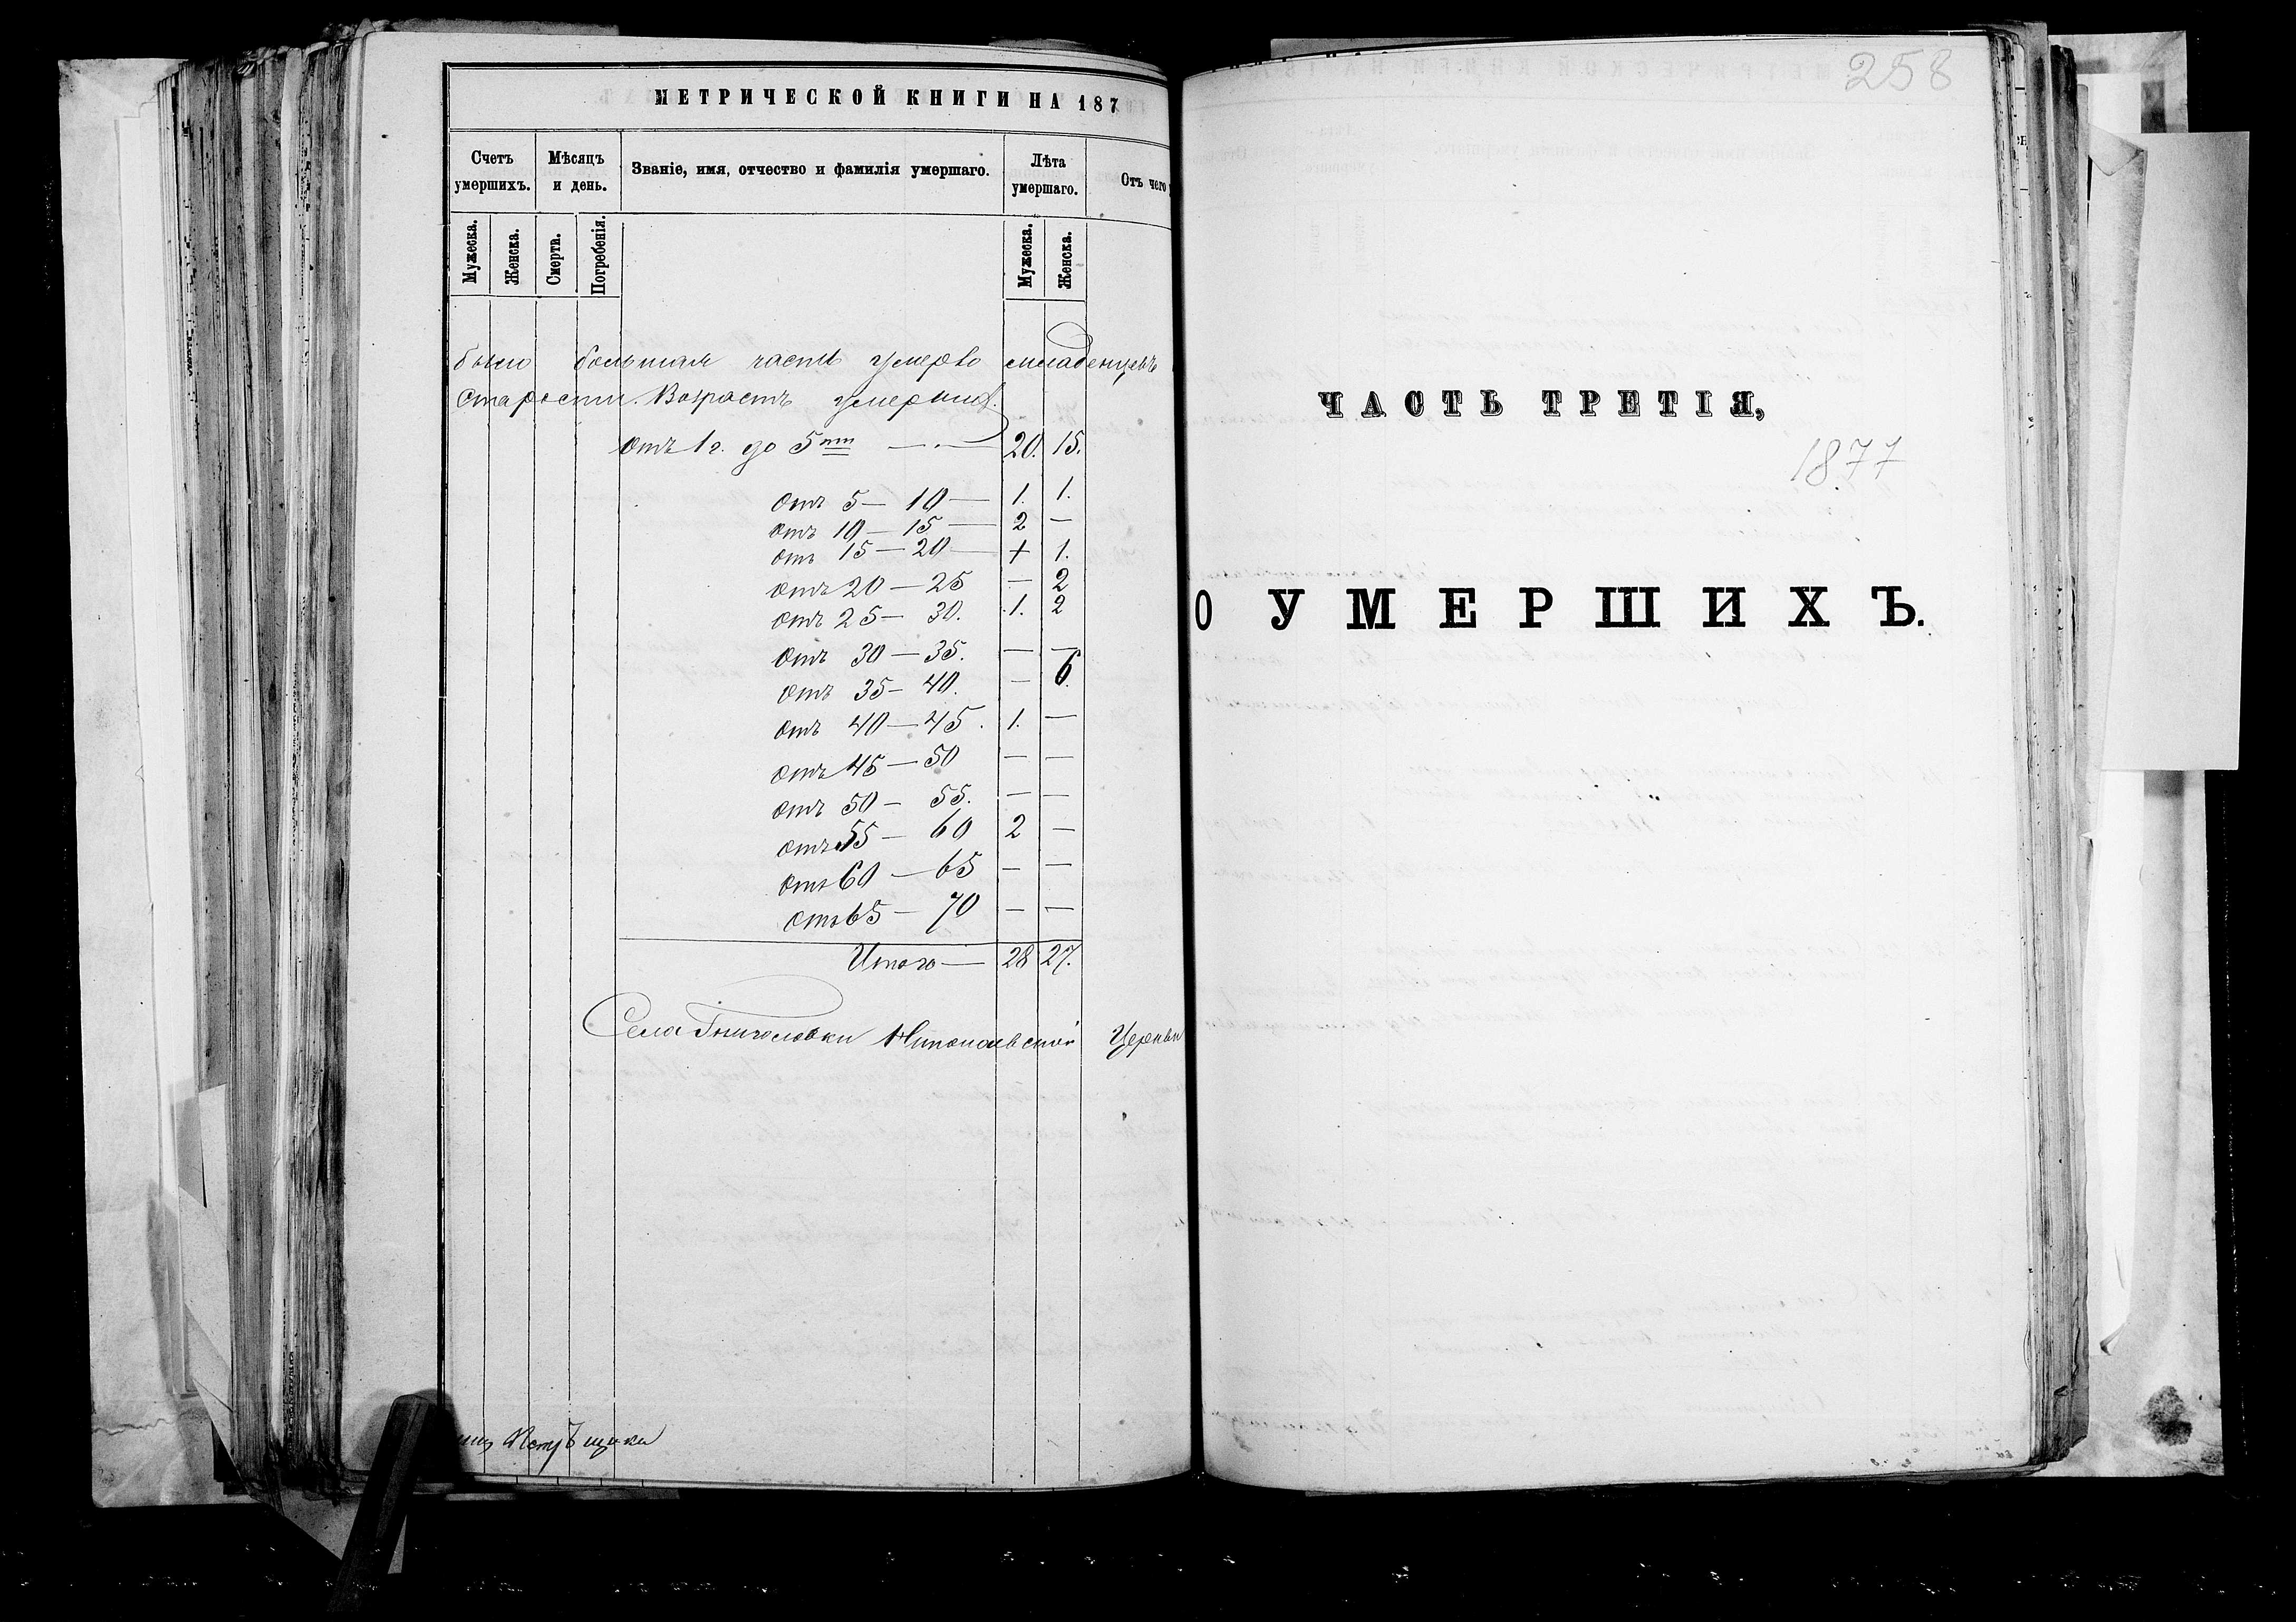 МЕТРИЧЕСКОЙ КНИГИ НА 187
Счетъ умершихъ. Мѣсяцъ и день. Званіе, имя, отчество и фамилія умершаго. Лѣта умершаго. Отъ чего
Мужеска. Женска. Смерти. Погребенія. Мужеска. Женска.
было большая часть умерло младенцевъ
старости. Возрастъ умерших.
отъ 1 г. до 5ти — 20. 15.
отъ 5 — 10 — 1. 1.
отъ 10 — 15 — 2 —
отъ 15 — 20 — + 1.
отъ 20 — 25 — 2
отъ 25 — 30. 1. 2
отъ 30 — 35. — —
отъ 35 — 40. — 6.
отъ 40 — 45. 1. —
отъ 45 — 50 — —
отъ 50 — 55. — —
отъ 55 — 60 2 —
отъ 60 — 65 — —
отъ 65 — 70 — —
Итого — 28 27.
Села Церкви
258
ЧАСТЬ ТРЕТІЯ,
1877
О УМЕРШИХЪ.